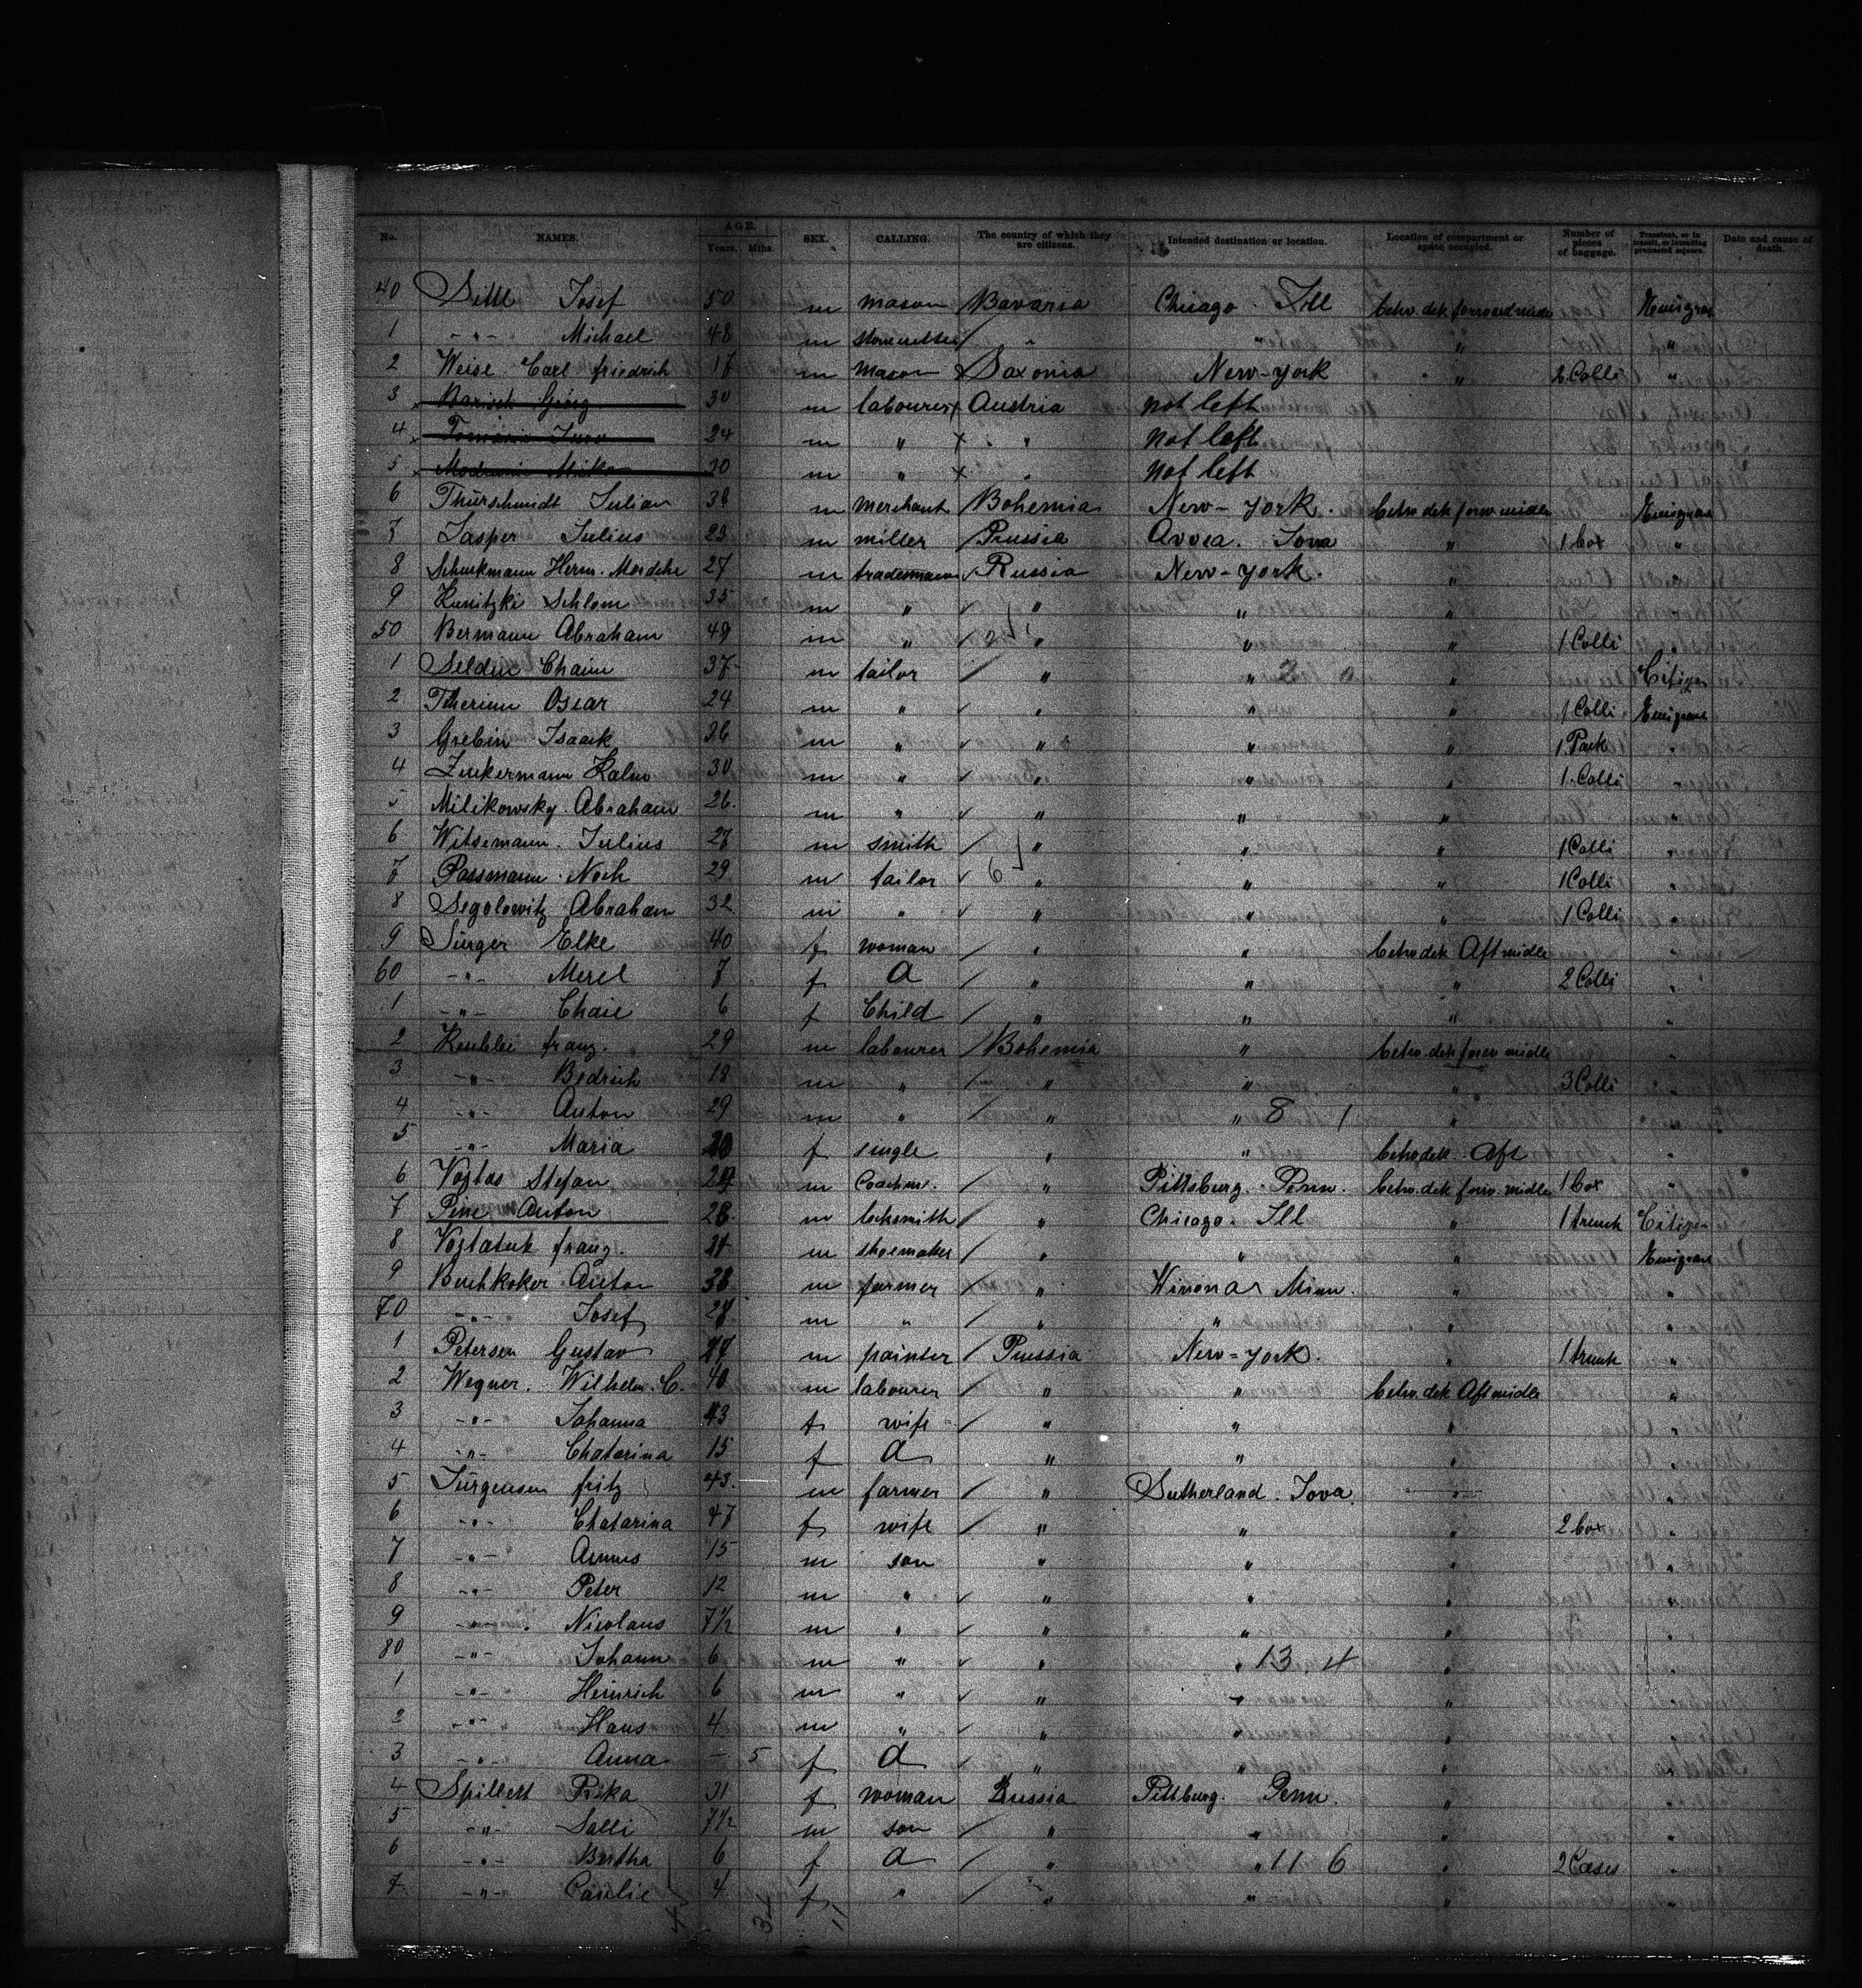 No. NAMES. AGE. Years. Mths. SEX. CALLING. The country of which they are citizens. Intended destination or location. Location of compartment or space occupied. Number of pieces of baggage. Transient, or in transit, or intending protracted sojourn. Date and cause of death.
40 Josef 50 m mason Bavaria Chicago Ill betw. dek
1 -"- Michael 48 m " " "
2 Weise Carl friedrich 17 m mason Saxonia New-York " 2 Colli "
3 30 m labourer Austria not left
4 24 m " " not left
5 Mike m " " not left
6 Julian m merchant Bohemia New-York. betw. dek forw. midle
7 Jasper Julius 23 m miller Prussia Iova " 1 box "
8 Herm. 27 m Russia New-York. "
9 Kunitzki Schlom 35 m " " " "
50 Bermann Abraham 49 m " " " " 1 Colli "
1 Seldin Chaim 37 m tailor " " " Citizen
2 Oscar 24 m " " " " 1 Colli
3 Grebin Isaack 26 m " " " " 1 Pack "
4 Zuckermann 30 m " " " " 1 Colli "
5 Milikowsky Abraham 26 m " " " " "
6 Witsemann Julius 27 m smith " " " 1 Colli "
7 Passmann 29 m tailor " " " 1 Colli "
8 Segolowitz Abraham 32 m " " " " 1 Colli "
9 Elke 40 f woman " " betw. dek Aft midle "
60 -"- Merel 7 f " " " 2 Colli "
1 -"- Chaie 6 f Child " " " "
2 franz. 29 m labourer Bohemia " betw. dek forw. midle "
3 -"- Bedrich 18 m " " " " 3 Colli "
4 -"- Anton 29 m " " " 8 1 " "
5 -"- Maria f single " " betw. dek Aft "
6 Vojtas Stefan m " Pittsburg. Penn. betw. dek forw. midle 1 box "
7 Anton 28 m locksmith " Chicago. Ill " 1 trunk Citizen
8 franz. m shoemaker " " "
9 Anton 38 m farmer " Winona Minn. " "
70 -"- Josef m " " " " "
1 Petersen Gustav m painter Prussia New-York. " 1 trunk "
2 Wegner. Wilhelm. C. 40 m labourer " " betw. dek Aft midle "
3 -"- Johanna 43 f wife " " " "
4 -"- Chatarina 15 f " " " "
5 Jürgensen fritz 43 m farmer " Sutherland. Iova. " "
6 -"- Chatarina 47 f wife " " " 2 box "
7 -"- 15 m son " " " "
8 -"- Peter 12 m " " " " "
9 -"- Nicolaus 7½ m " " " " "
80 -"- Johann 6 m " " " 13. 4 " "
1 -"- Heinrich 6 m " " " " "
2 -"- Hans 4 m " " " " "
3 -"- Anna - 5 f d " " " "
4 Spillert Rika 31 f woman Russia Pittburg. Penn. " "
5 -"- Salli 7½ m son " " " "
6 -"- Bertha 6 f " " 11 6 " 2 Cases "
7 -"- 4 f " " " " "